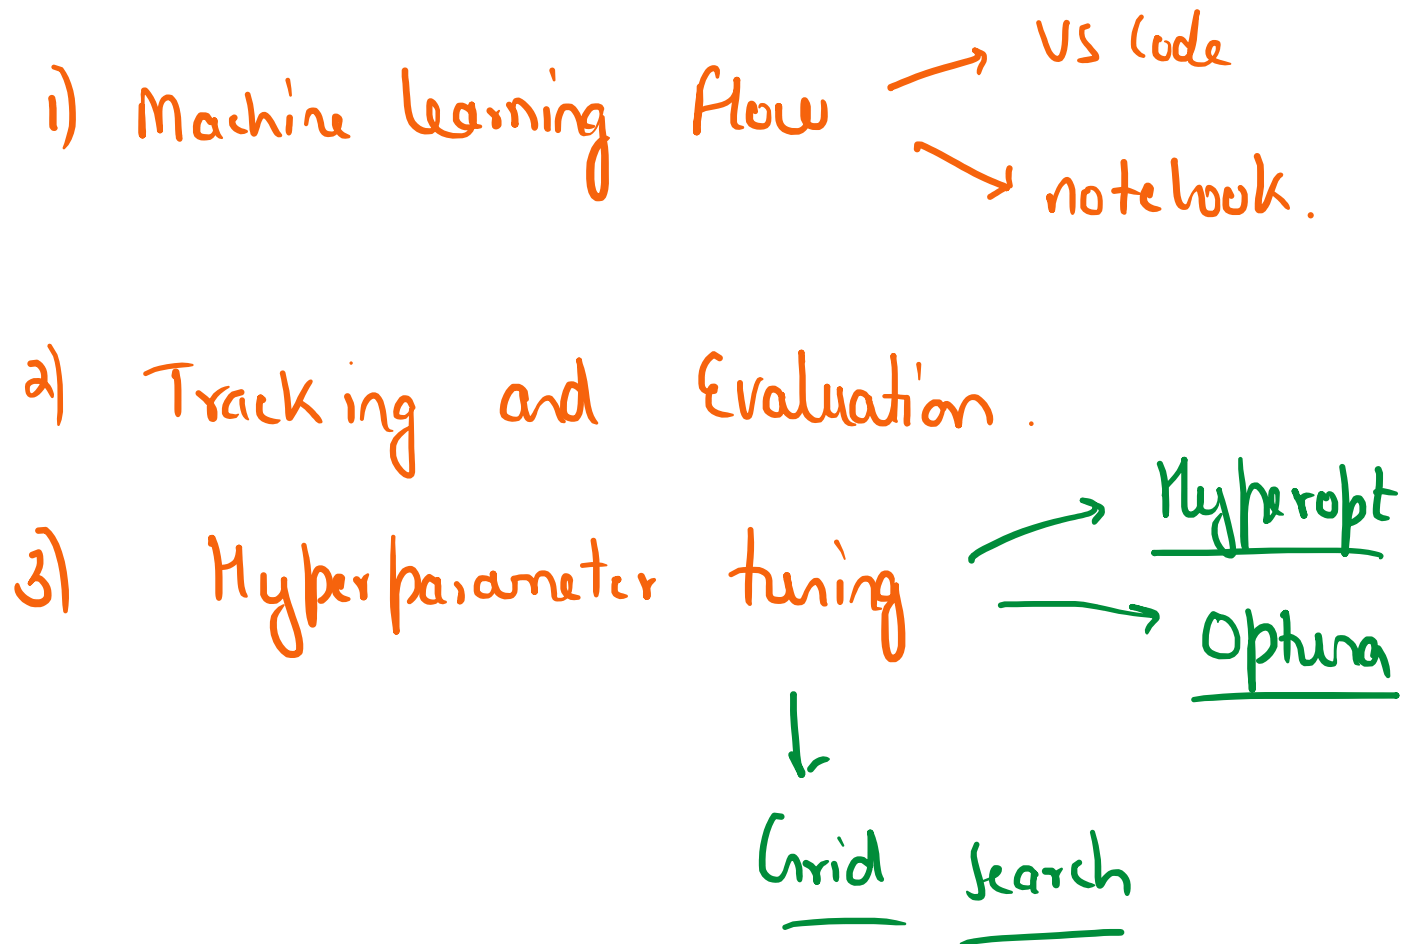 1) Machine learning Flow → VS Code
→ notebook.
2) Tracking and Evaluation.
3) Hyperparameter tuning → Hyperopt
→ Optuna
↓
Grid Search